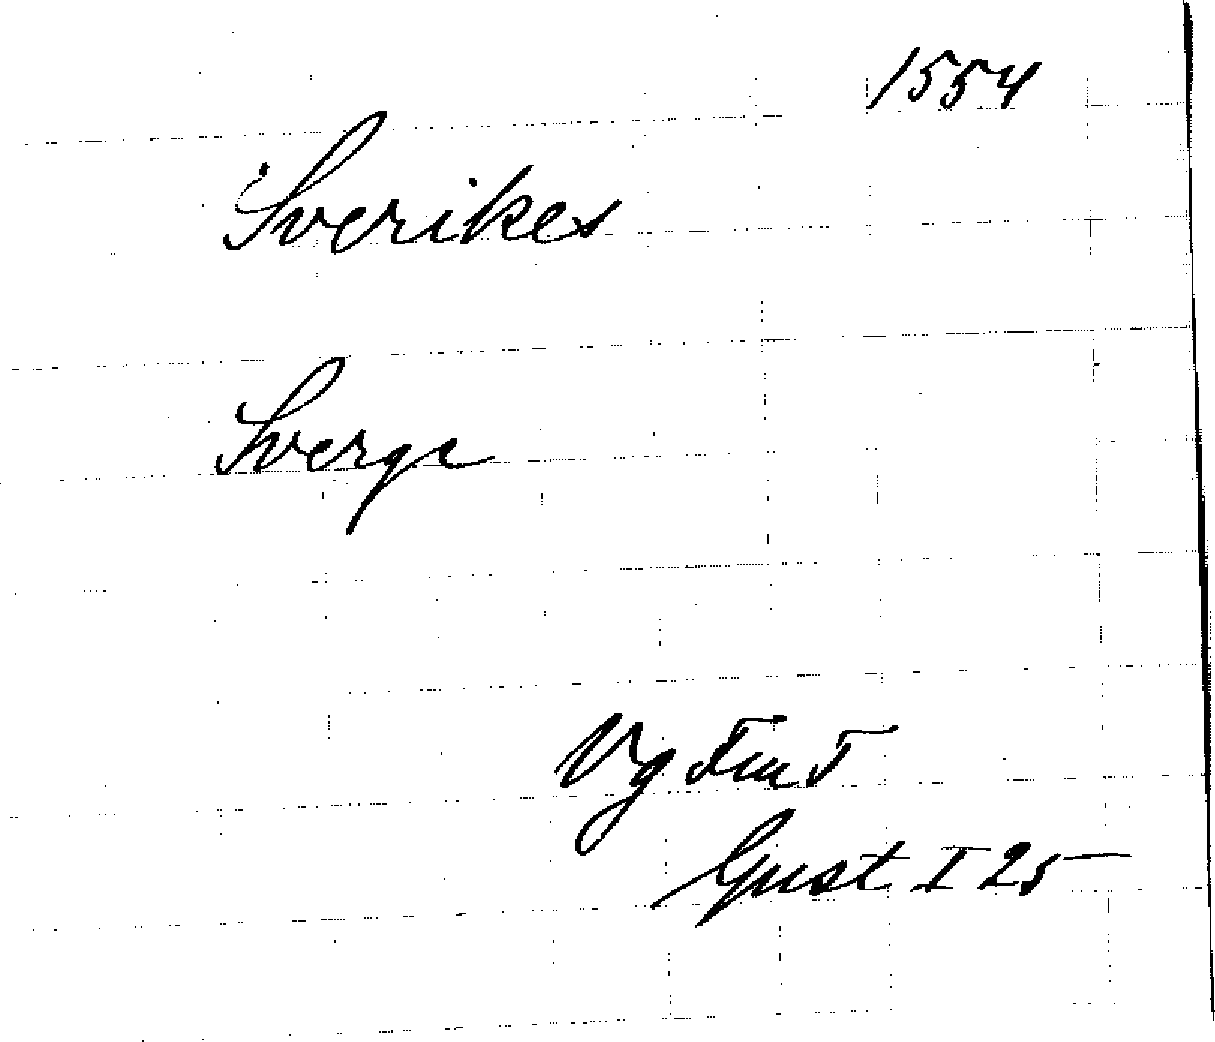 1554
Sverikes
Sverge
Vg FmT
Gust I 25